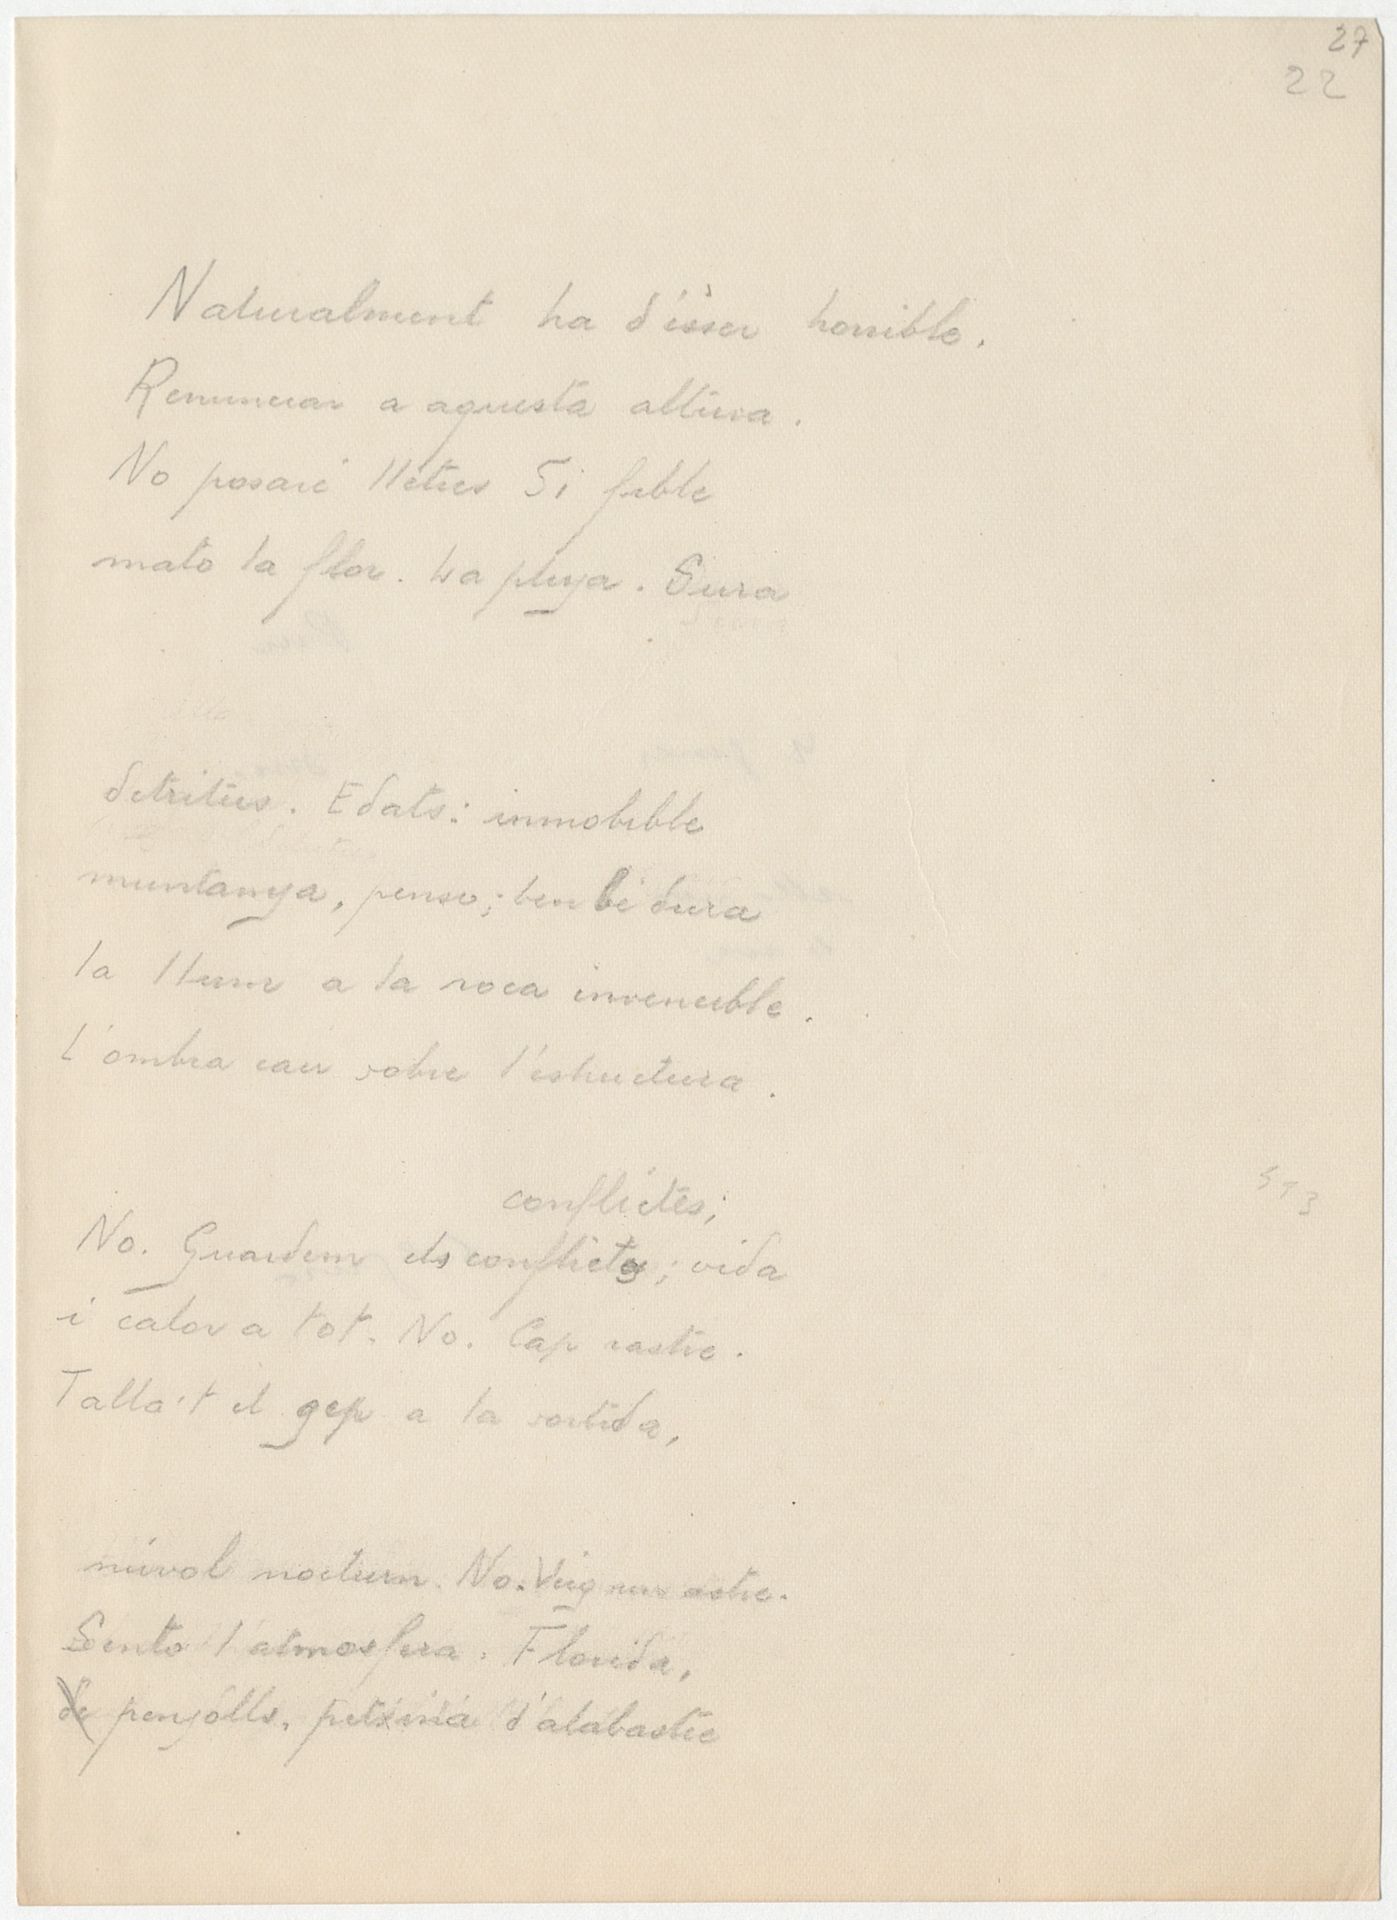 27
22
Naturalment ha d'ésser horrible.
Renunciar a aquesta altura.
No posaré lletres Si feble
mato la flor. La pluja. Sura
detritus. Edats: inmobible
muntanya, penso; ben bé dura
la llum a la roca invencible.
L'ombra cau sobre l'estructura.
conflictes;
No. Guardem els conflictes; vida
i calor a tot. No. Cap rastre.
Talla't el gep a la sortida,
573
núvol nocturn. No. Veig un astre.
Sento l'atmosfera. Florida,
de penjolls, petxina d'alabastre